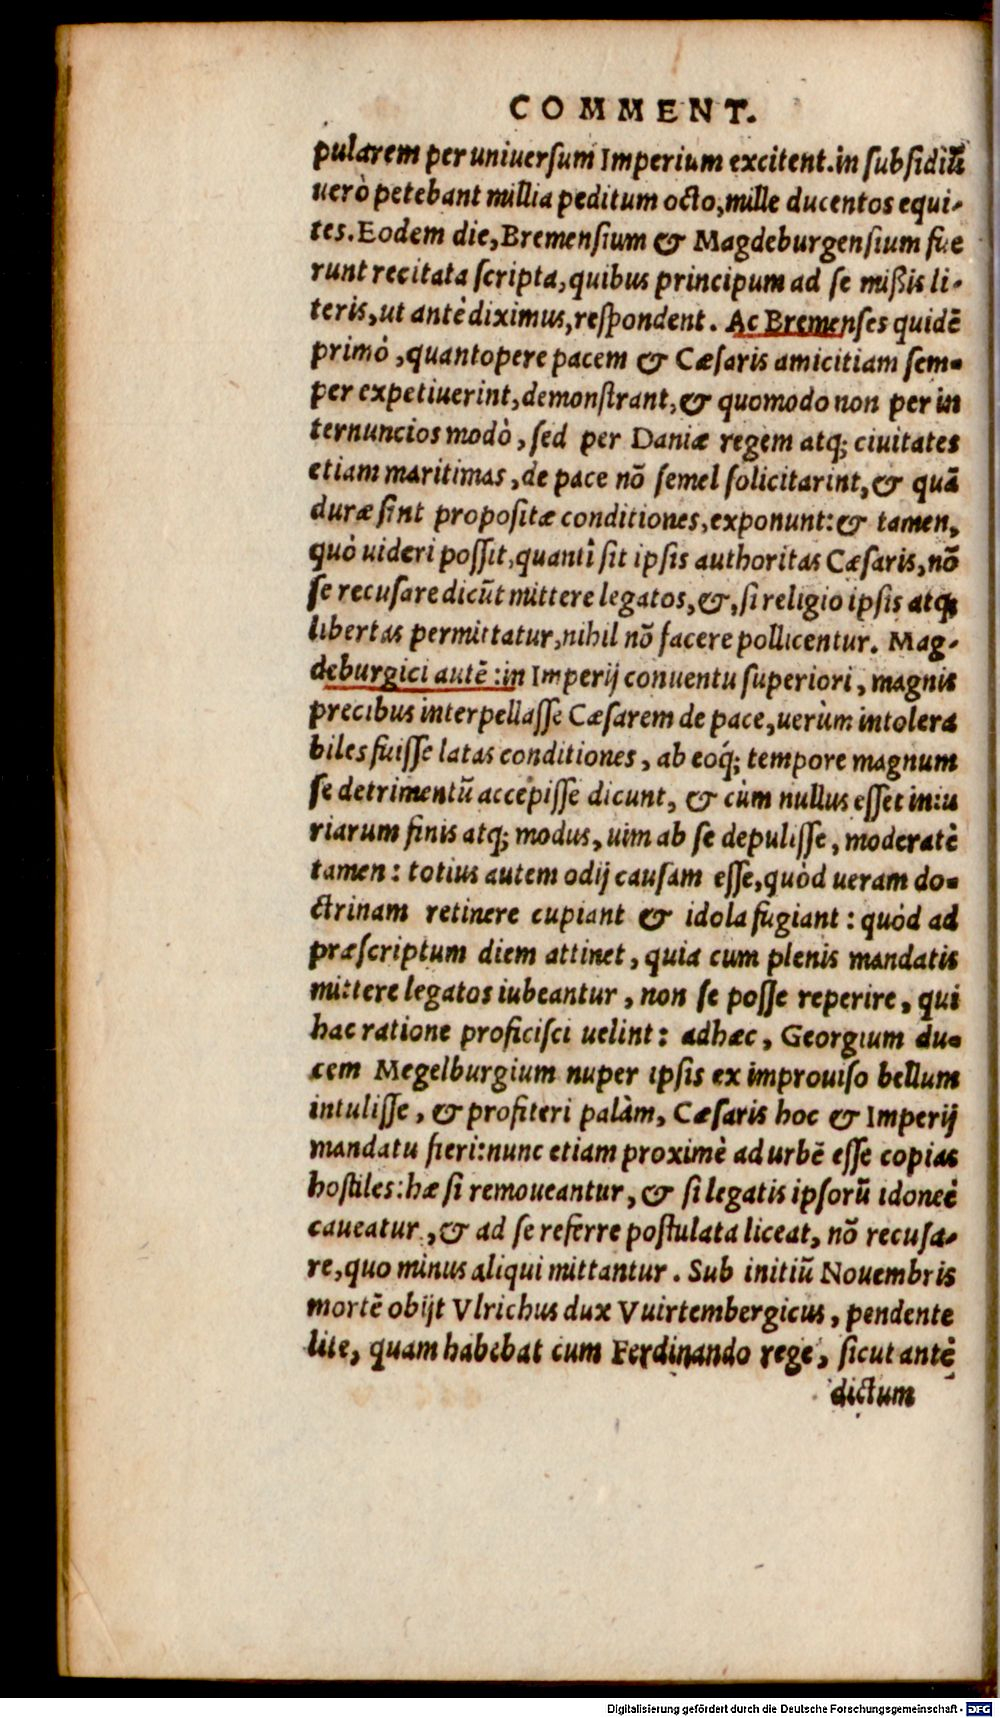 COMMENT.
pularem per uniuersum Imperium excitent. in subsidiũ
uerò petebant millia peditum octo, mille ducentos equi-
tes. Eodem die, Bremensium & Magdeburgensium fue
runt recitata scripta, quibus principum ad se mißis li-
teris, ut antè diximus, respondent. Ac Bremenses quidẽ
primò, quantopere pacem & Cæsaris amicitiam sem-
per expetiuerint, demonstrant, & quomodo non per in
ternuncios modò, sed per Daniæ regem atq; ciuitates
etiam maritimas, de pace nõ semel solicitarint, & quã
duræ sint propositæ conditiones, exponunt: & tamen,
quò uideri possit, quanti sit ipsis authoritas Cæsaris, nõ
se recusare dicũt mittere legatos, &, si religio ipsis atq;
libertas permittatur, nihil nõ facere pollicentur. Mag-
deburgici autẽ: in Imperij conuentu superiori, magnis
precibus interpellasse Cæsarem de pace, uerùm intolera
biles fuisse latas conditiones, ab eoq́; tempore magnum
se detrimentũ accepisse dicunt, & cùm nullus esset iniu
riarum finis atq; modus, uim ab se depulisse, moderatè
tamen: totius autem odij causam esse, quòd ueram do-
ctrinam retinere cupiant & idola fugiant: quòd ad
præscriptum diem attinet, quia cum plenis mandatis
mittere legatos iubeantur, non se posse reperire, qui
hac ratione proficisci uelint: adhæc, Georgium du-
cem Megelburgium nuper ipsis ex improuiso bellum
intulisse, & profiteri palàm, Cæsaris hoc & Imperij
mandatu fieri: nunc etiam proximè ad urbẽ esse copias
hostiles: hæ si remoueantur, & si legatis ipsorũ idoneè
caueatur, & ad se referre postulata liceat, nõ recusa-
re, quo minus aliqui mittantur. Sub initiũ Nouembris
mortẽ obijt Vlrichus dux Vuirtembergicus, pendente
lite, quam habebat cum Ferdinando rege, sicut antè
dictum
Digitalisierung gefördert durch die Deutsche Forschungsgemeinschaft - DFG